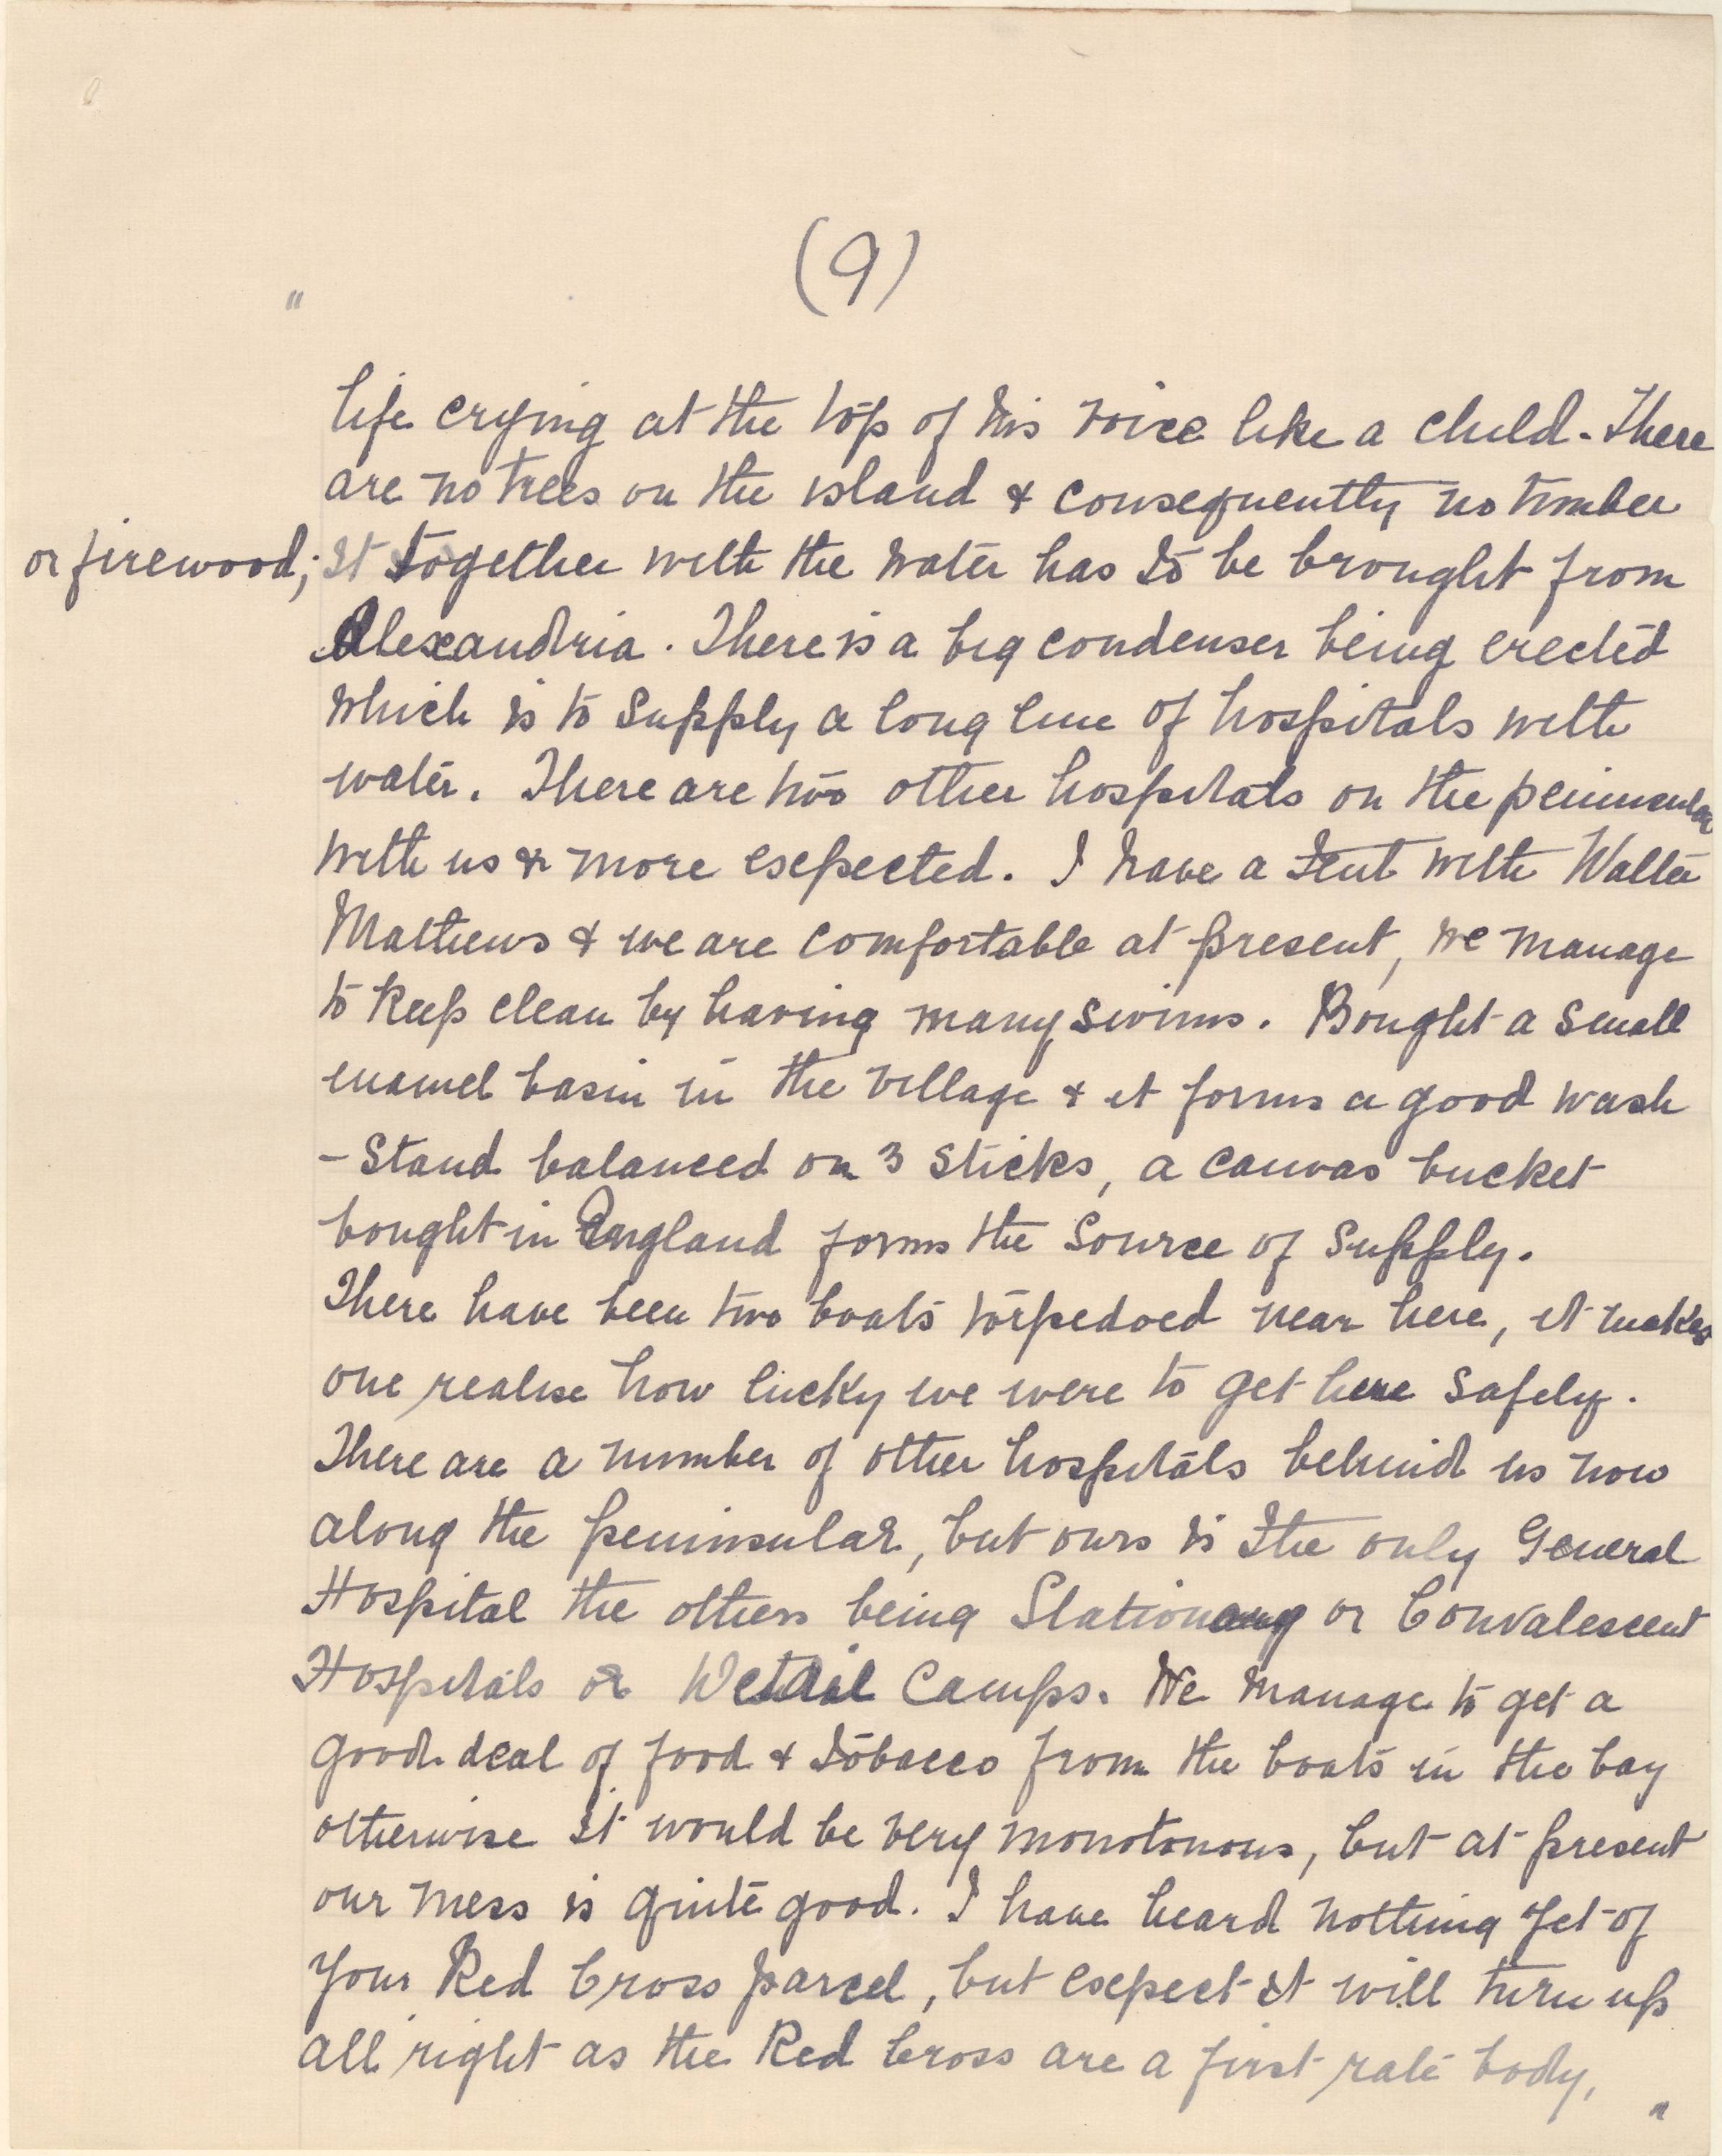 (9)
"
life crying at the top of his voice like a child. There
are no trees on the island & consequently no timber
or firewood; it together with the water has to be brought from
Alexandria. There is a big condenser being erected
which is to supply a long line of hospitals with
water. There are two other hospitals on the peninsular
with us & more expected. I have a tent with Walter
Mathews & we are comfortable at present, we manage
to keep clean by having many swims. Bought a small
enamel basin in the village & it forms a good wash
-stand balanced on 3 sticks, a canvas bucket
bought in England forms the source of supply.
There have been two boats torpedoed near here, it makes
one realise how lucky we were to get here safely.
There are a number of other hospitals behind us now
along the peninsular, but ours is the only General
Hospital the others being Stationary or Convalescent
Hospitals or Detail Camps. We manage to get a
good deal of food & tobacco from the boats in the bay
otherwise it would be very monotonous, but at present
our mess is quite good. I have heard nothing yet of
your Red Cross parcel, but expect it will turn up
all right as the Red Cross are a first rate body, "